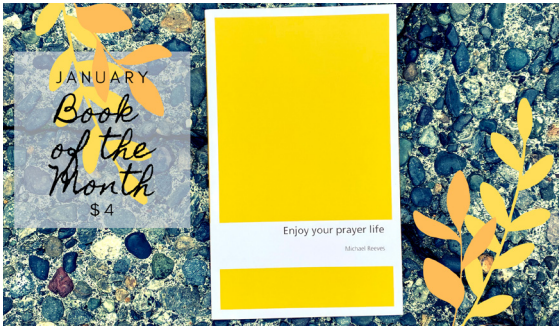 JANUARY
Book
of the
Month
$4
Enjoy your prayer life
Michael Reeves